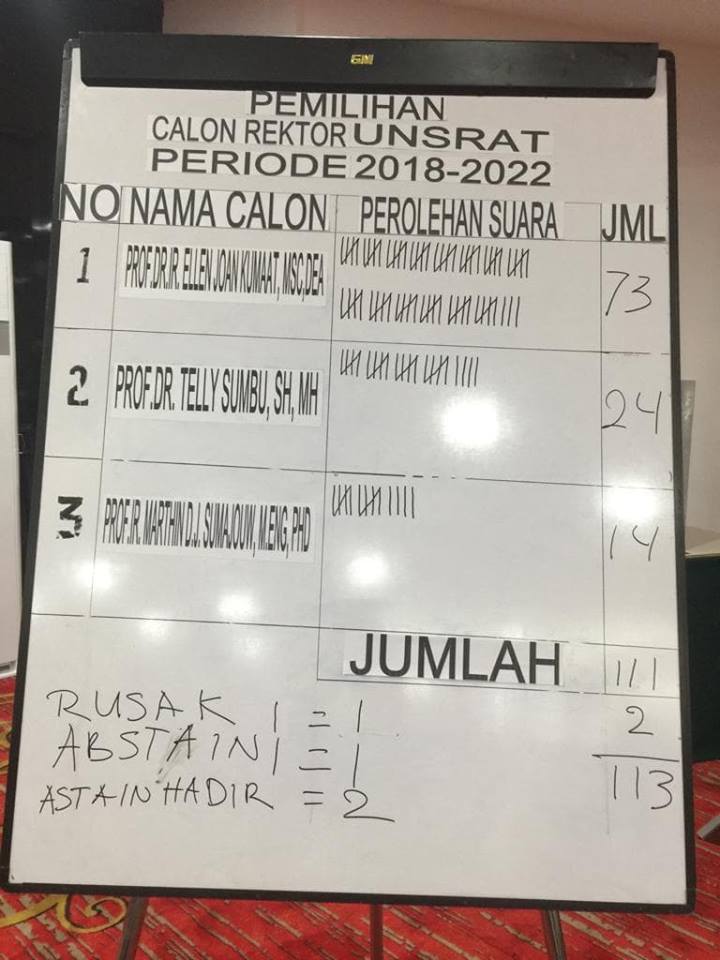 GM
PEMILIHAN
CALON REKTOR UNSRAT
PERIODE 2018-2022
NO NAMA CALON PEROLEHAN SUARA JML
1 PROF.DR.IR. ELLEN JOAN KUMAAT, MSC,DEA 73
2 PROF.DR. TELLY SUMBU, SH, MH 24
3 PROF.IR. MARTHIN D.J. SUMAJOUW, M.ENG, PHD 14
JUMLAH 111
RUSAK 1 = 1 2
ABSTAIN 1 = 1
ASTAIN HADIR = 2 113